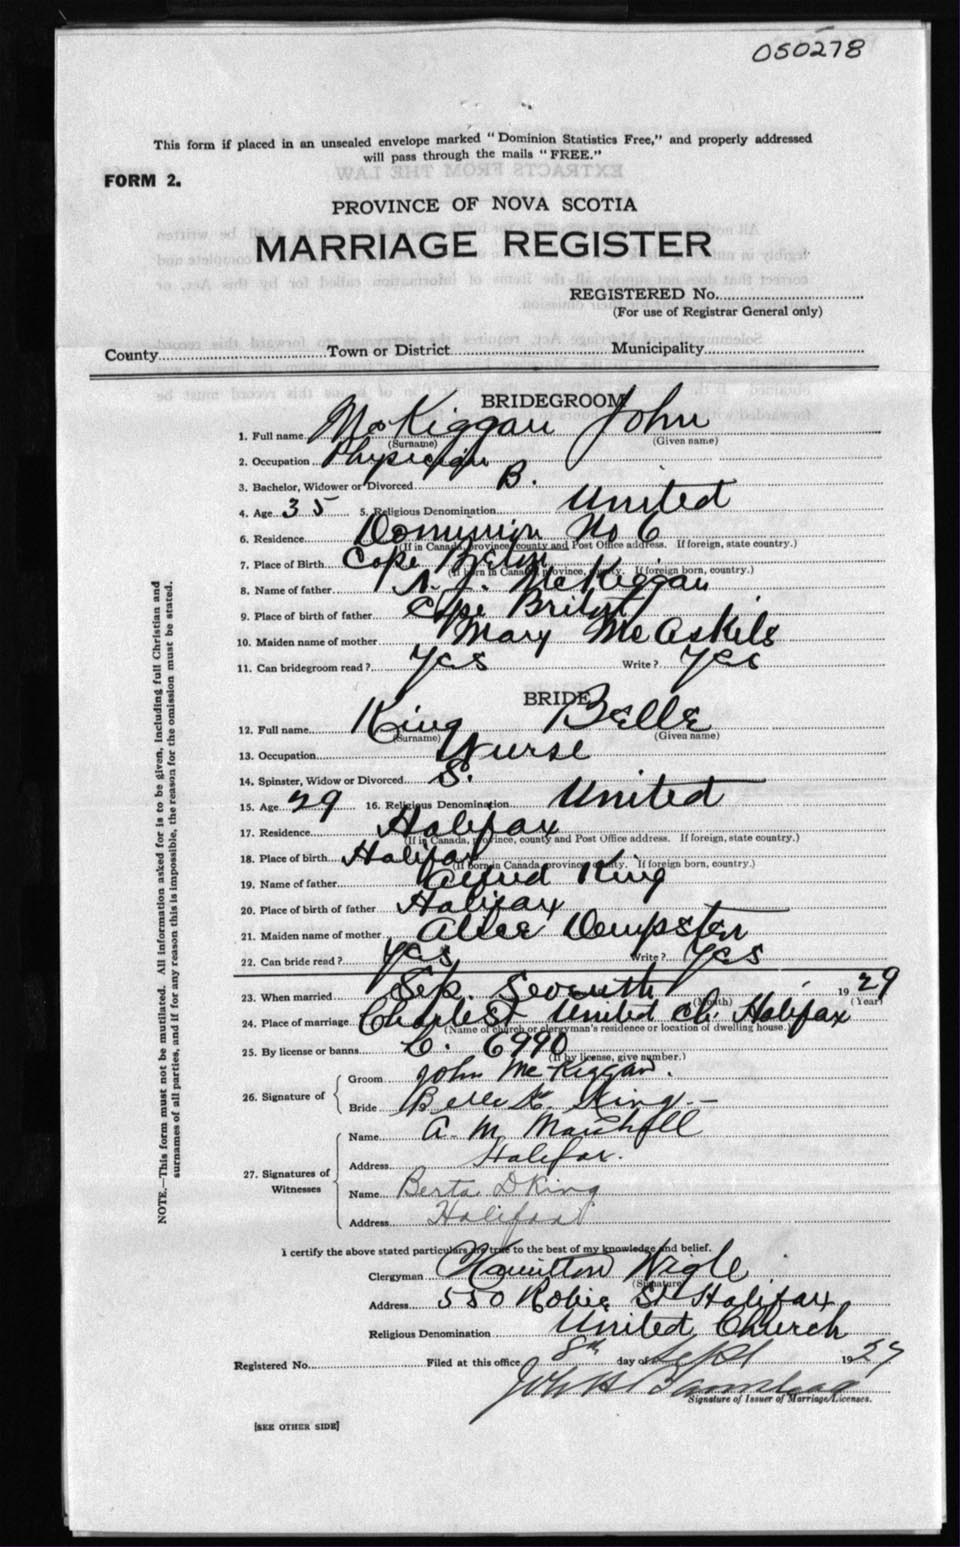 050278
This form if placed in an unsealed envelope marked "Dominion Statistics Free," and properly addressed
will pass through the mails "FREE."
FORM 2.
PROVINCE OF NOVA SCOTIA
MARRIAGE REGISTER
REGISTERED No.
(For use of Registrar General only)
County Town or District Municipality
BRIDEGROOM
1. Full name McKiggan John
(Surname) (Given name)
2. Occupation Physician
3. Bachelor, Widower or Divorced B.
4. Age 35 5. Religious Denomination United
6. Residence Dominion No 6
(If in Canada, province, county and Post Office address. If foreign, state country.)
7. Place of Birth Cape Breton
(If born in Canada, province, county. If foreign born, country.)
8. Name of father A. J. McKiggan
9. Place of birth of father Cape Briton
10. Maiden name of mother Mary McAskile
11. Can bridegroom read? Yes Write? Yes
BRIDE
12. Full name King Belle
(Surname) (Given name)
13. Occupation Nurse
14. Spinster, Widow or Divorced S.
15. Age 29 16. Religious Denomination United
17. Residence Halifax
(If in Canada, province, county and Post Office address. If foreign, state country.)
18. Place of birth Halifax
(If born in Canada, province, county. If foreign born, country.)
19. Name of father Alfred King
20. Place of birth of father Halifax
21. Maiden name of mother Alice Dempster
22. Can bride read? Yes Write? Yes
23. When married Sep. Seventh 1929
(Month) (Year)
24. Place of marriage Charles St United Ch. Halifax
(Name of church or clergyman's residence or location of dwelling house.)
25. By license or banns L. 6990
(If by license, give number.)
26. Signature of
Groom John McKiggan.
Bride Belle K. King
27. Signatures of Witnesses
Name A. M. Marshall
Address Halifax.
Name Berta D King
Address Halifax
I certify the above stated particulars are true to the best of my knowledge and belief.
Clergyman Hamilton Wigle
(Signature)
Address 550 Robie St Halifax
Religious Denomination United Church
Registered No. Filed at this office 8th day of Sept 19
Signature of Issuer of Marriage Licenses.
[SEE OTHER SIDE]
NOTE.—This form must not be mutilated. All information asked for is to be given, including full Christian and
surnames of all parties, and if for any reason this is impossible, the reason for the omission must be stated.